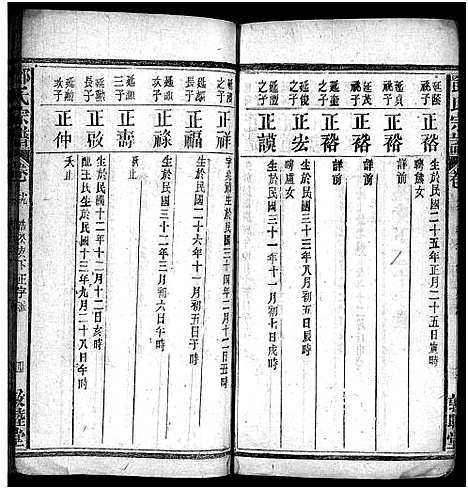 氏宗譜 卷
延 祧子 正裕 生於民國二十五年正月二十五日寅時
聘 女
延茂 祧子 正裕 詳前
延貞 祧子 正裕 詳前
延俊 之子 正宏 生於民國三十三年八月初五日辰時
聘盧女
延童 之子 正謨 生於民國三十一年十一月初七日辰時
之子 正祥 生於民國三十四年二月十一日 時
延 長子 正福 生於民國二十六年十一月初五日子時
延勳 次子 正祿 生於民國三十二年三月初六日午時
延勳 三子 正壽 夭止
延 長子 正啟 生於民國十二年十二月十二日亥時
配王氏生於民國十三年九月二十八日午時
延 次子 正仲 夭止
氏宗譜 卷 下正字 四 敦睦堂